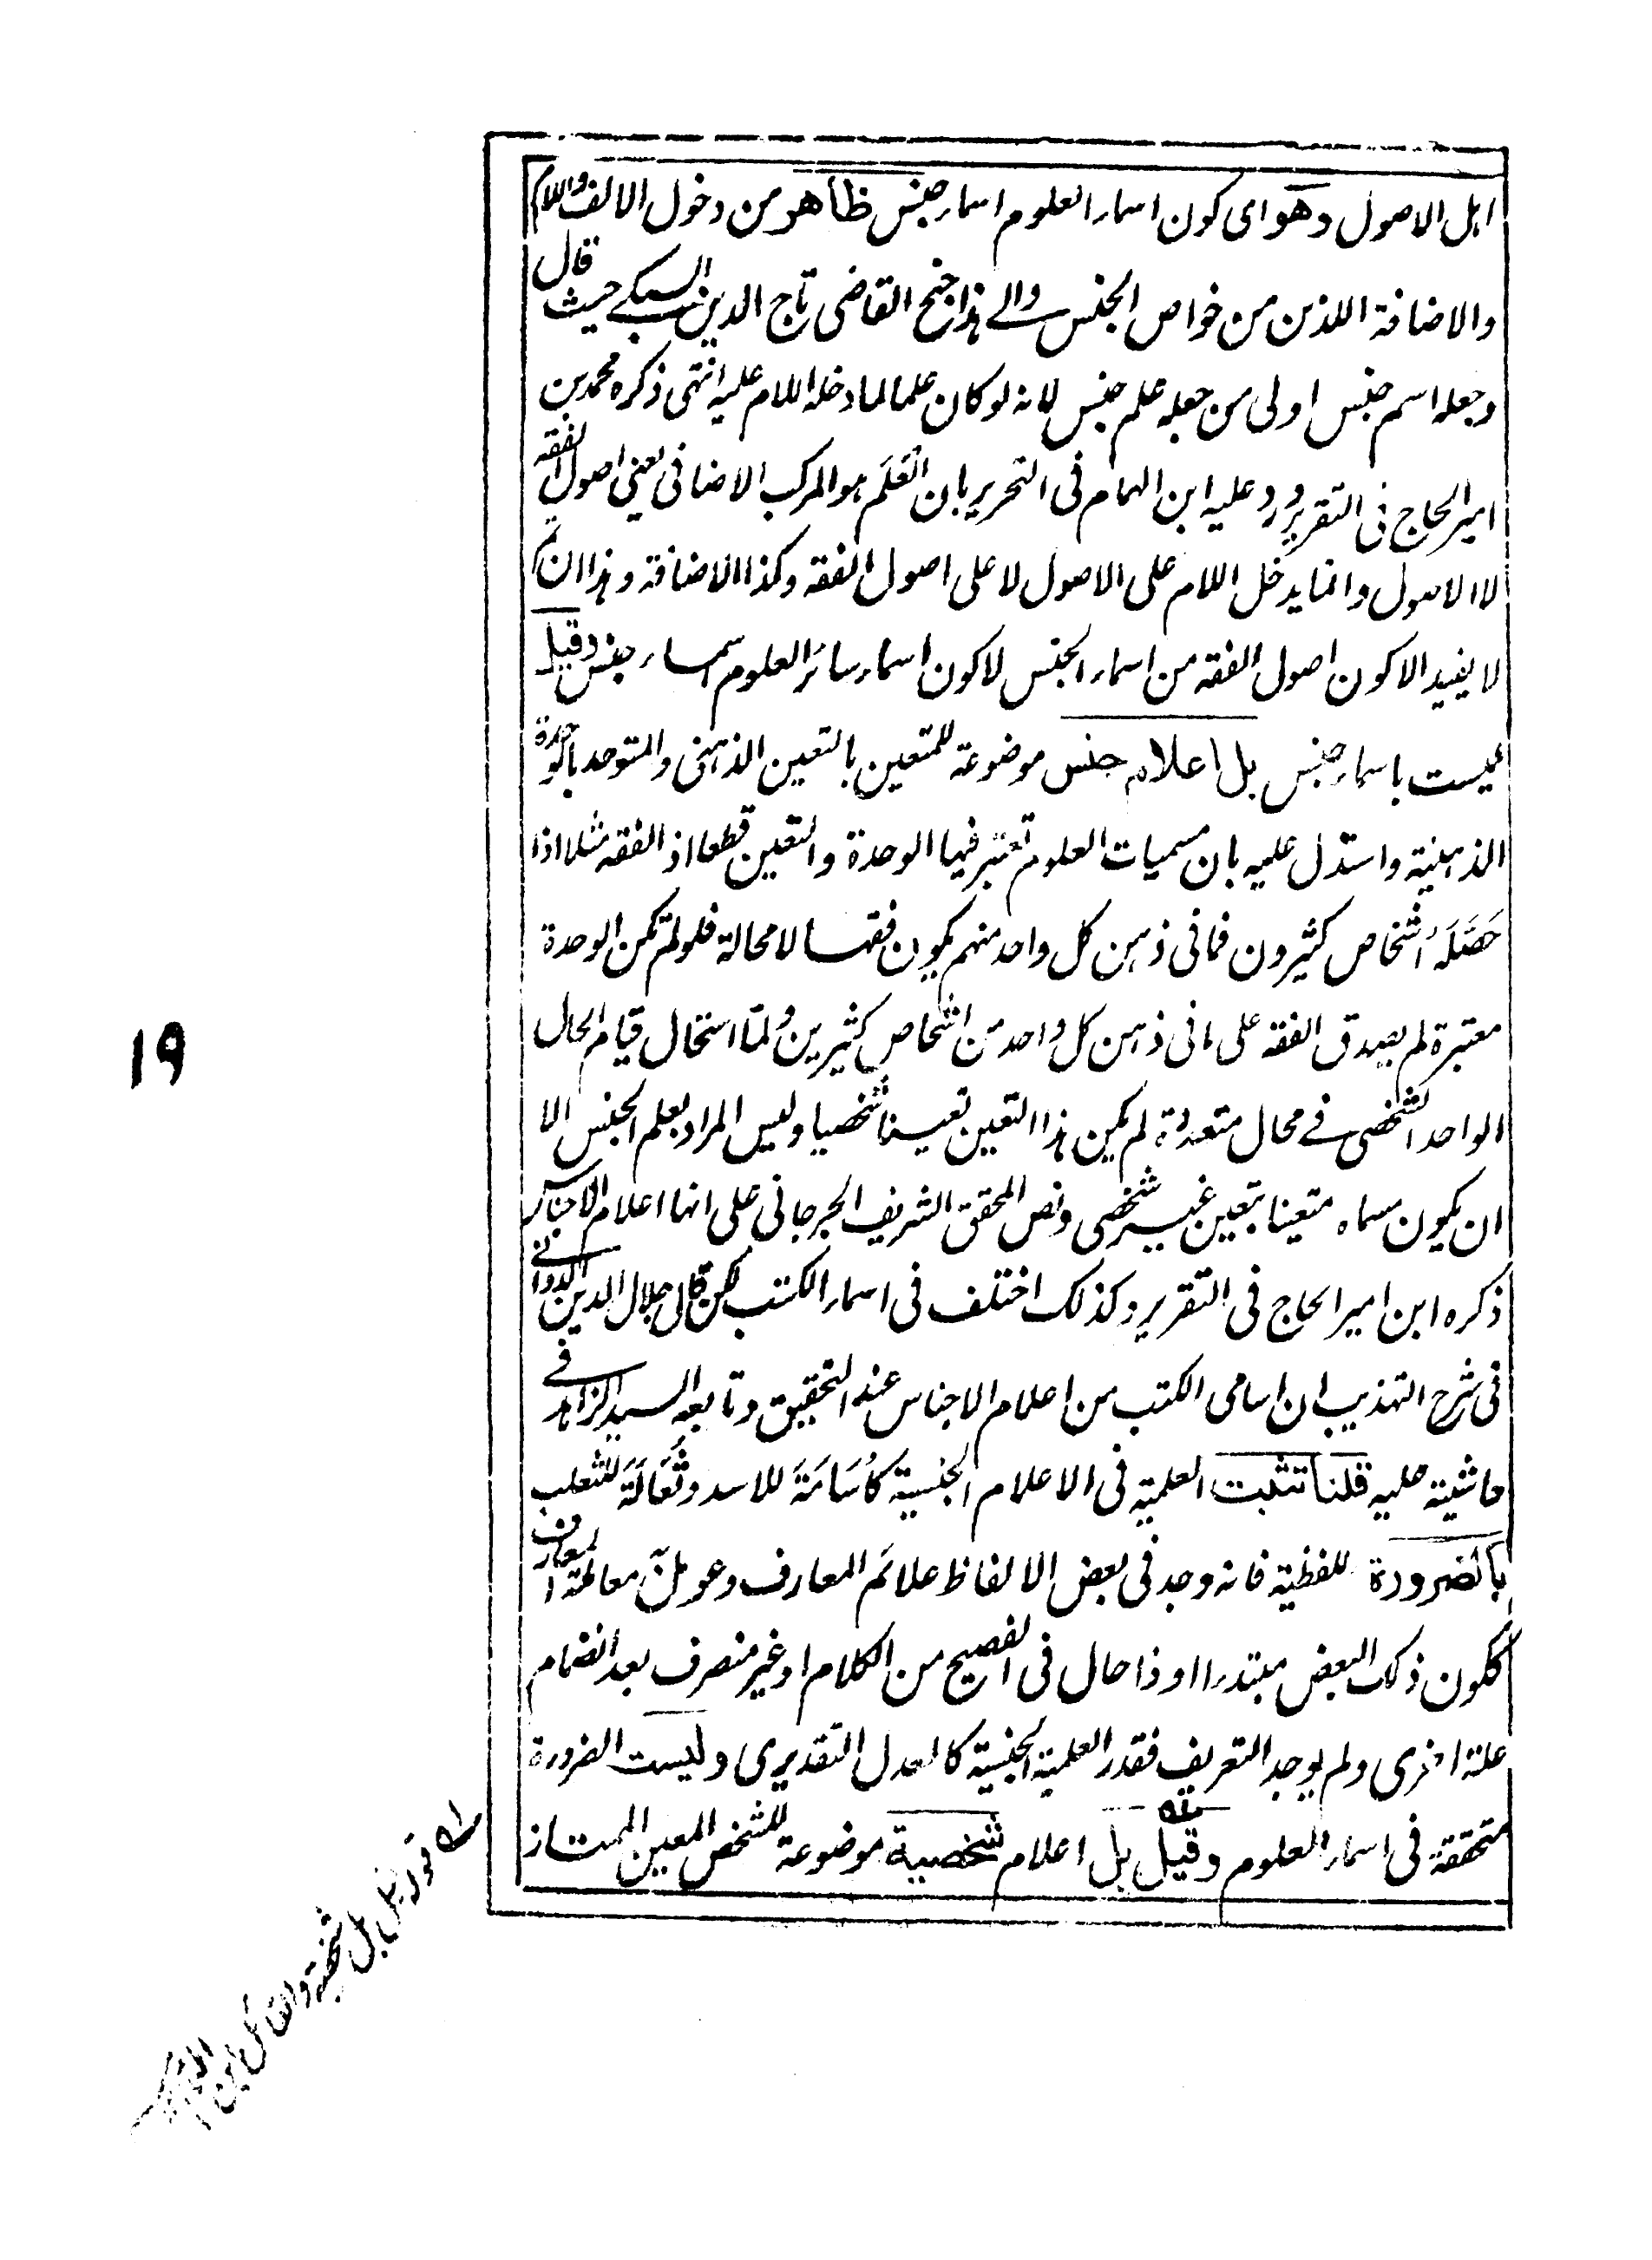 اہل الاصول وهو ای کون اسماء العلوم اسماء جنس ظاهر من دخول الالف واللام
والاضافة اللذین من خواص الجنس والے ہذا جنح القاضی تاج الدین السبکے حیث قال
وجعلہ اسم جنس اولی من جعلہ علم جنس لانہ لو کان علما لما دخلہ اللام علیہ انتہی ذکرہ محمد بن
امیر الحاج فی التقریر ورد علیہ ابن الہمام فی التحریر بان العَلَم ہو المرکب الاضافی یعنی اصول الفقہ
لا الاصول وانما یدخل اللام علی الاصول لا علی اصول الفقہ وکذا الاضافة وہذا ان تم
لا یفید الا کون اصول الفقہ من اسماء الجنس لا کون اسماء سائر العلوم اسماء جنس وقیل
لیست باسماء جنس بل اعلام جنس موضوعة للمتعین بالتعین الذہنی والمتوحد بالوحدة
الذہنیة واستدل علیہ بان مسمیات العلوم تعتبر فیہا الوحدة والتعین قطعا اذ الفقہ مثلا اذا
حَصَّلَهُ اشخاص کثیرون فما فی ذہن کل واحد منہم یکون فقہا لا محالة فلو لم تکن الوحدة
معتبرة لم یصدق الفقہ علی ما فی ذہن کل واحد من اشخاص کثیرین ولمّا استحال قیام الحال
الواحد الشخصی فے محال متعددة لم یکن ہذا التعین تعینا شخصیا ولیس المراد بعلم الجنس الا
ان یکون مسماہ متعینا بتعین غیر شخصی ونص المحقق الشریف الجرجانی علی انہا اعلام الاجناس
ذکرہ ابن امیر الحاج فی التقریر وکذلک اختلف فی اسماء الکتب لکن قال جلال الدین الدوانے
فی شرح التہذیب ان اسامی الکتب من اعلام الاجناس عند التحقیق وتابعہ السید الزاہد فے
حاشیتہ علیہ قلنا تثبت العلمیة فی الاعلام الجنسیة کاُسَامَةَ للاسد وثُعَالَةَ للثعلب
بالضرورة للفظیة فانہ وجد فی بعض الالفاظ علائم المعارف وعومل معاملة المعارف
ککون ذلک البعض مبتدءا او ذا حال فی الفصیح من الکلام او غیر منصرف بعد انضمام
علة اخری ولم یوجد التعریف فقدر العلمیة الجنسیة کالعدل التقدیری ولیست الضرورة
متحققة فی اسماء العلوم وقیل بل اعلام شخصیة موضوعة للشخص المعین الممتاز
۱۹
لہ قولہ قیل بل شخصیة والقائل ابن الہمام